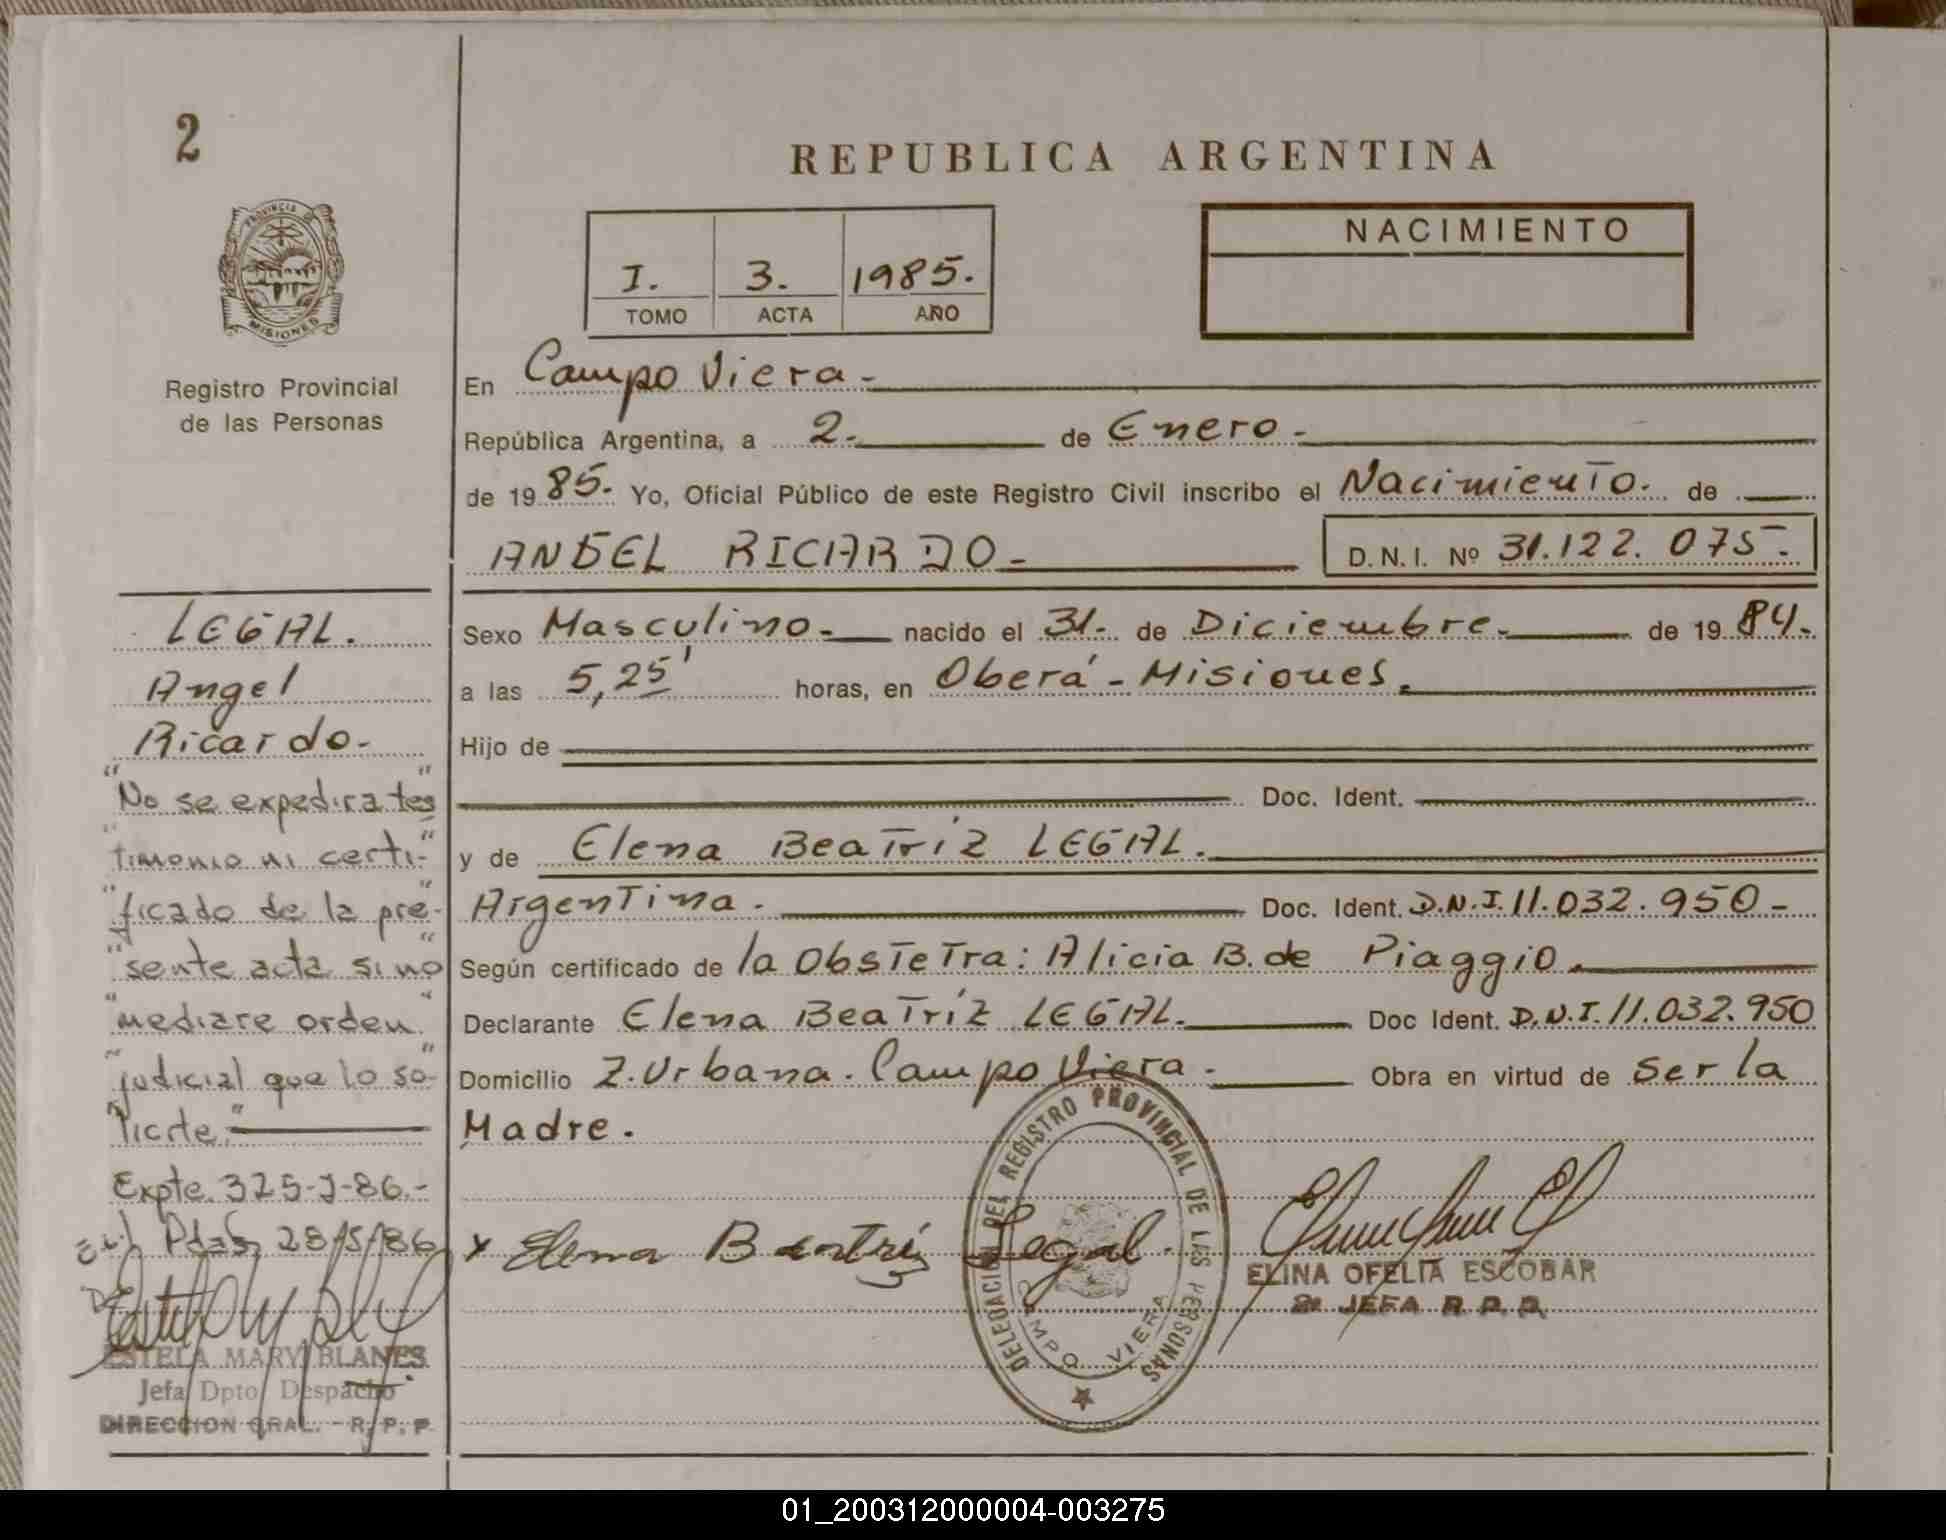 2
REPUBLICA ARGENTINA
PROVINCIA DE
MISIONES
Registro Provincial
de las Personas
I. 3. 1985.
TOMO ACTA AÑO
NACIMIENTO
En Campo Viera.-
República Argentina, a 2.- de Enero.-
de 1985. Yo, Oficial Público de este Registro Civil inscribo el Nacimiento. de
ANGEL RICARDO.- D.N.I. Nº 31.122.075-.
Sexo Masculino.- nacido el 31.- de Diciembre.- de 1984.-
a las 5,25' horas, en Oberá - Misiones.
Hijo de
Doc. Ident.
y de Elena Beatríz LEGAL.
Argentina. Doc. Ident. D.N.I. 11.032.950-
Según certificado de la Obstetra: Alicia B. de Piaggio.
Declarante Elena Beatríz LEGAL. Doc Ident. D.N.I. 11.032.950
Domicilio Z. Urbana. Campo Viera. Obra en virtud de Ser la
Madre.
x Elena Beatríz Legal.
DELEGACION DEL REGISTRO PROVINCIAL DE LAS PERSONAS
CAMPO VIERA
ELINA OFELIA ESCOBAR
JEFA R. P. P.
LEGAL.
Angel
Ricardo-
"No se expedira tes"
"timonio ni certi-"
"ficado de la pre-"
"sente acta si no"
"mediare orden"
"judicial que lo so-"
"licite."
Expte. 325-J-86.-
Pdas, 28/5/86
ESTELA MARY BLANES
Jefa Dpto Despacho
DIRECCION GRAL. - R. P. P.
01_200312000004-003275